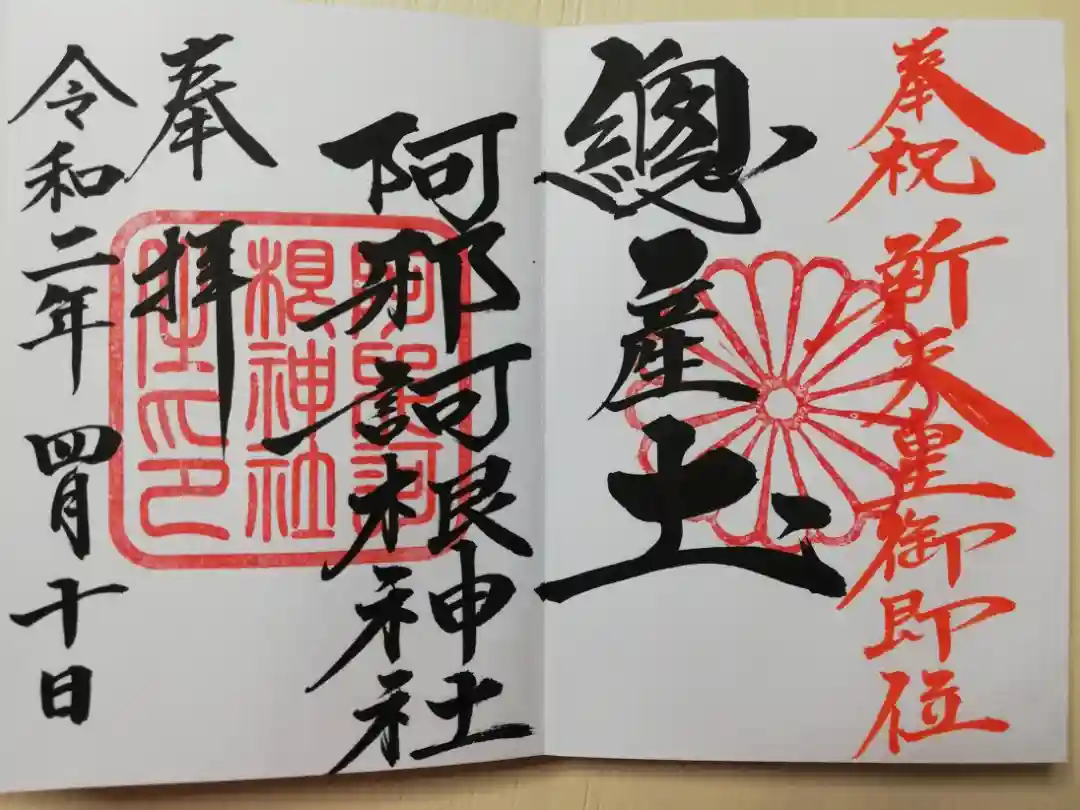 奉祝 新天皇御即位
總産土
阿邪訶根神社
奉拝
令和二年 四月十日
阿邪訶
根神社
之印